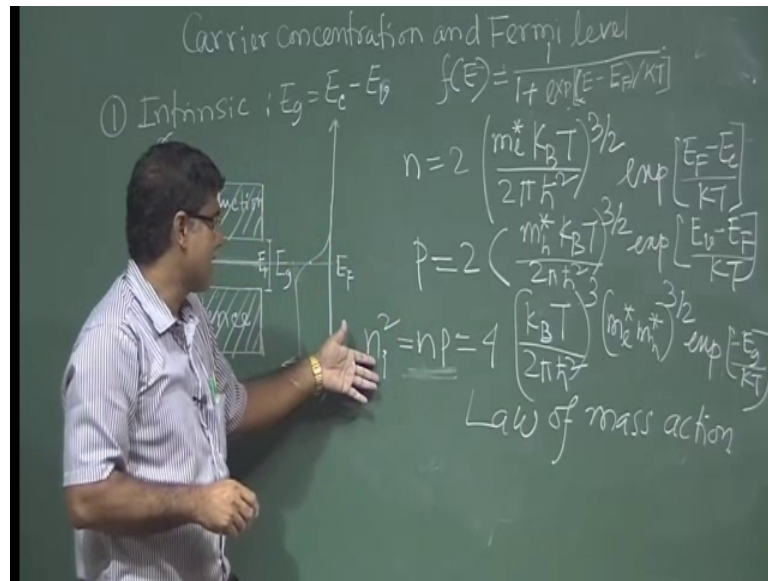 Carrier concentration and Fermi level
① Intrinsic ; E_g = E_c − E_v
f(E) = 1 / (1 + exp[(E − E_F)/KT])
n = 2 (m_e^* K_B T / 2πℏ²)^{3/2} exp[(E_F − E_c)/KT]
p = 2 (m_h^* K_B T / 2πℏ²)^{3/2} exp[(E_v − E_F)/KT]
n_i² = np = 4 (K_B T / 2πℏ²)³ (m_e^* m_h^*)^{3/2} exp(−E_g/KT)
Law of mass action
uction
E_g
E_F